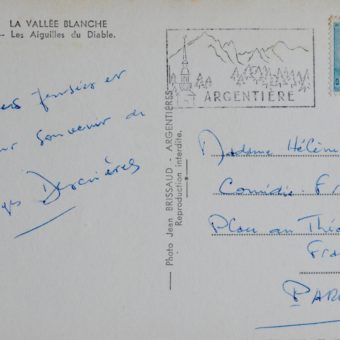 LA VALLÉE BLANCHE
- Les Aiguilles du Diable.
pensées et
souvenir de
ges Descrières
Photo Jean BRISSAUD - ARGENTIÈRES
Reproduction interdite.
ARGENTIÈRE
Madame Hélène
Comédie Fra
Place du Théâ
Fran
PAR